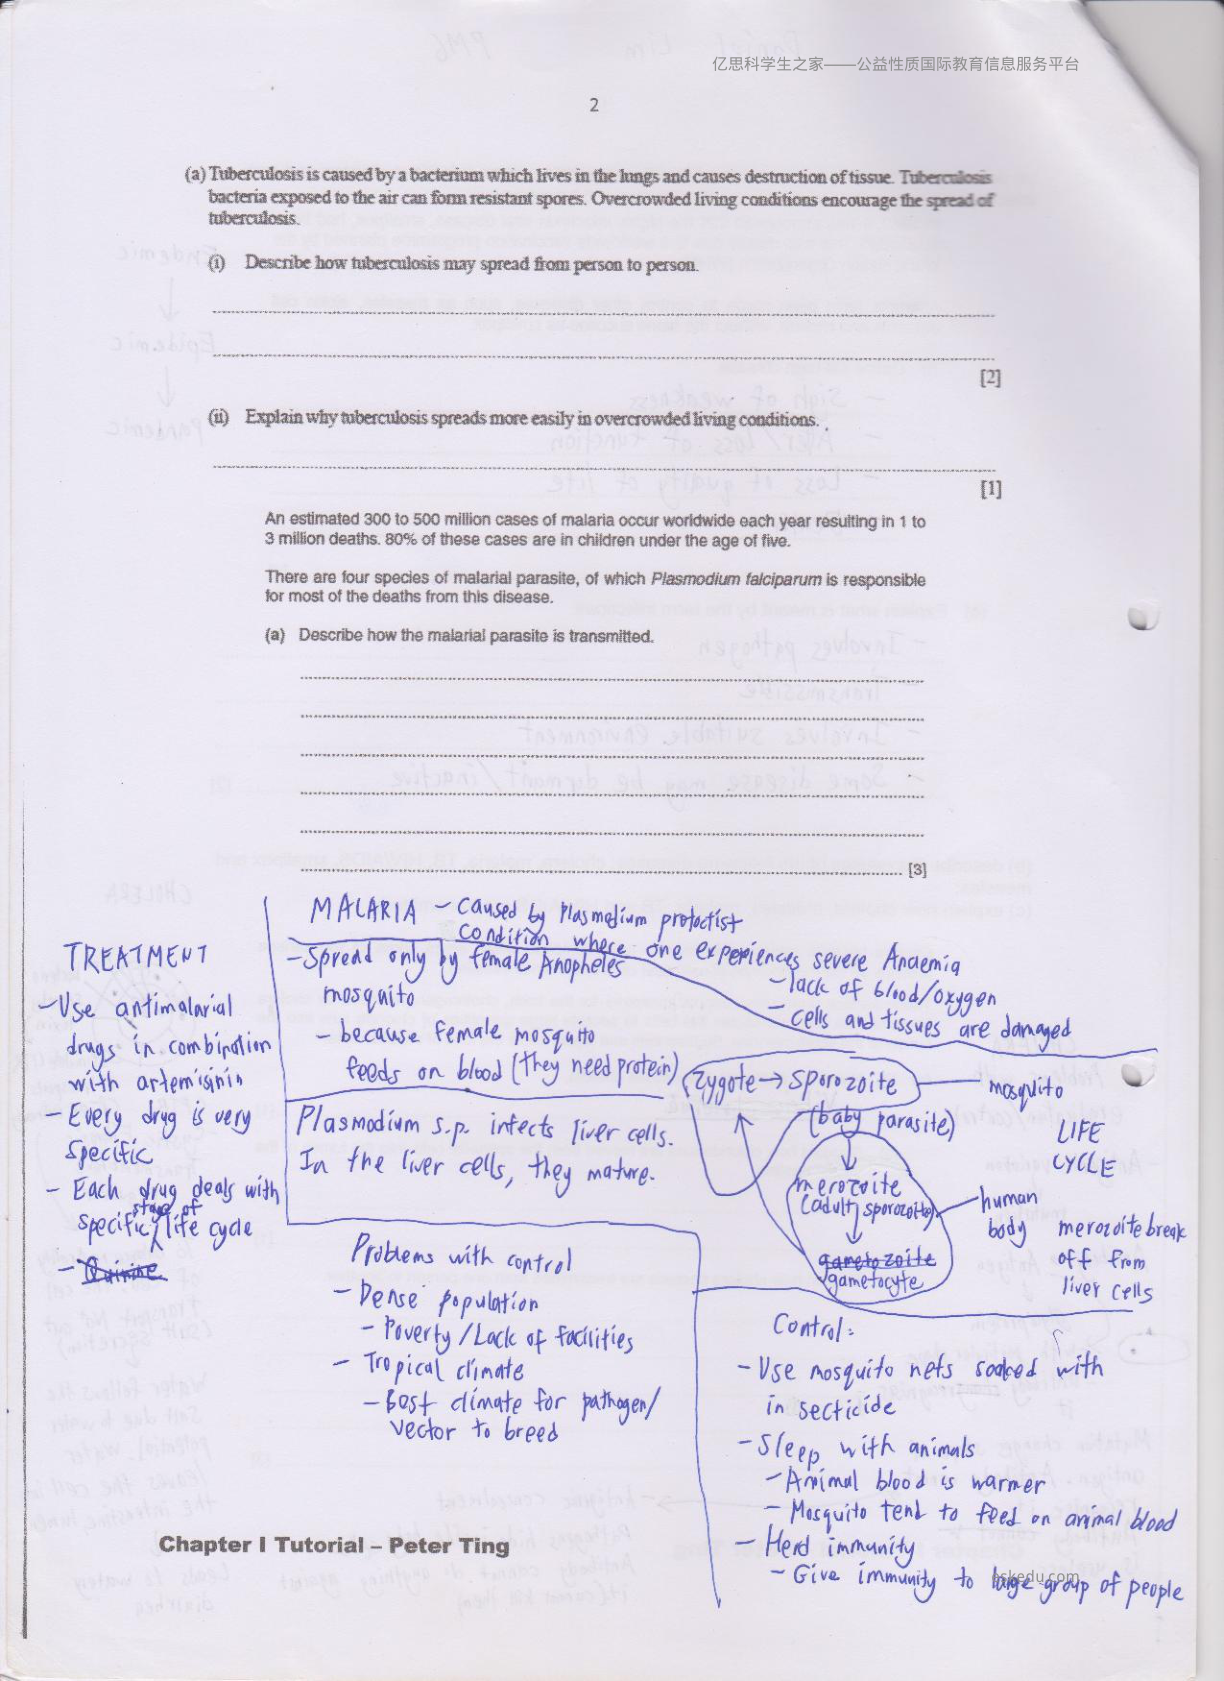 亿思科学生之家——公益性质国际教育信息服务平台
2
(a) Tuberculosis is caused by a bacterium which lives in the lungs and causes destruction of tissue. Tuberculosis
bacteria exposed to the air can form resistant spores. Overcrowded living conditions encourage the spread of
tuberculosis.
(i) Describe how tuberculosis may spread from person to person.
[2]
(ii) Explain why tuberculosis spreads more easily in overcrowded living conditions.
[1]
An estimated 300 to 500 million cases of malaria occur worldwide each year resulting in 1 to
3 million deaths. 80% of these cases are in children under the age of five.
There are four species of malarial parasite, of which Plasmodium falciparum is responsible
for most of the deaths from this disease.
(a) Describe how the malarial parasite is transmitted.
[3]
TREATMENT
- Use antimalarial
drugs in combination
with artemisinin
- Every drug is very
specific
- Each drug deals with
stage of
specific life cycle
- Quinine
MALARIA - caused by Plasmodium protoctist
condition where one experiences severe Anaemia
- lack of blood/oxygen
- cells and tissues are damaged
- Spread only by female Anopheles
mosquito
- because female mosquito
feeds on blood (they need protein)
Plasmodium s.p. infects liver cells.
In the liver cells, they mature.
zygote → sporozoite
mosquito
(baby parasite)
LIFE
CYCLE
merozoite
(adult sporozoite)
human
body
gametozoite
gametocyte
merozoite break
off from
liver cells
Problems with control
- Dense population
- Poverty/Lack of facilities
- Tropical climate
- Best climate for pathogen/
vector to breed
Control:
- Use mosquito nets soaked with
in secticide
- Sleep with animals
- Animal blood is warmer
- Mosquito tend to feed on animal blood
- Herd immunity
- Give immunity to large group of people
Chapter I Tutorial – Peter Ting
askedu.com